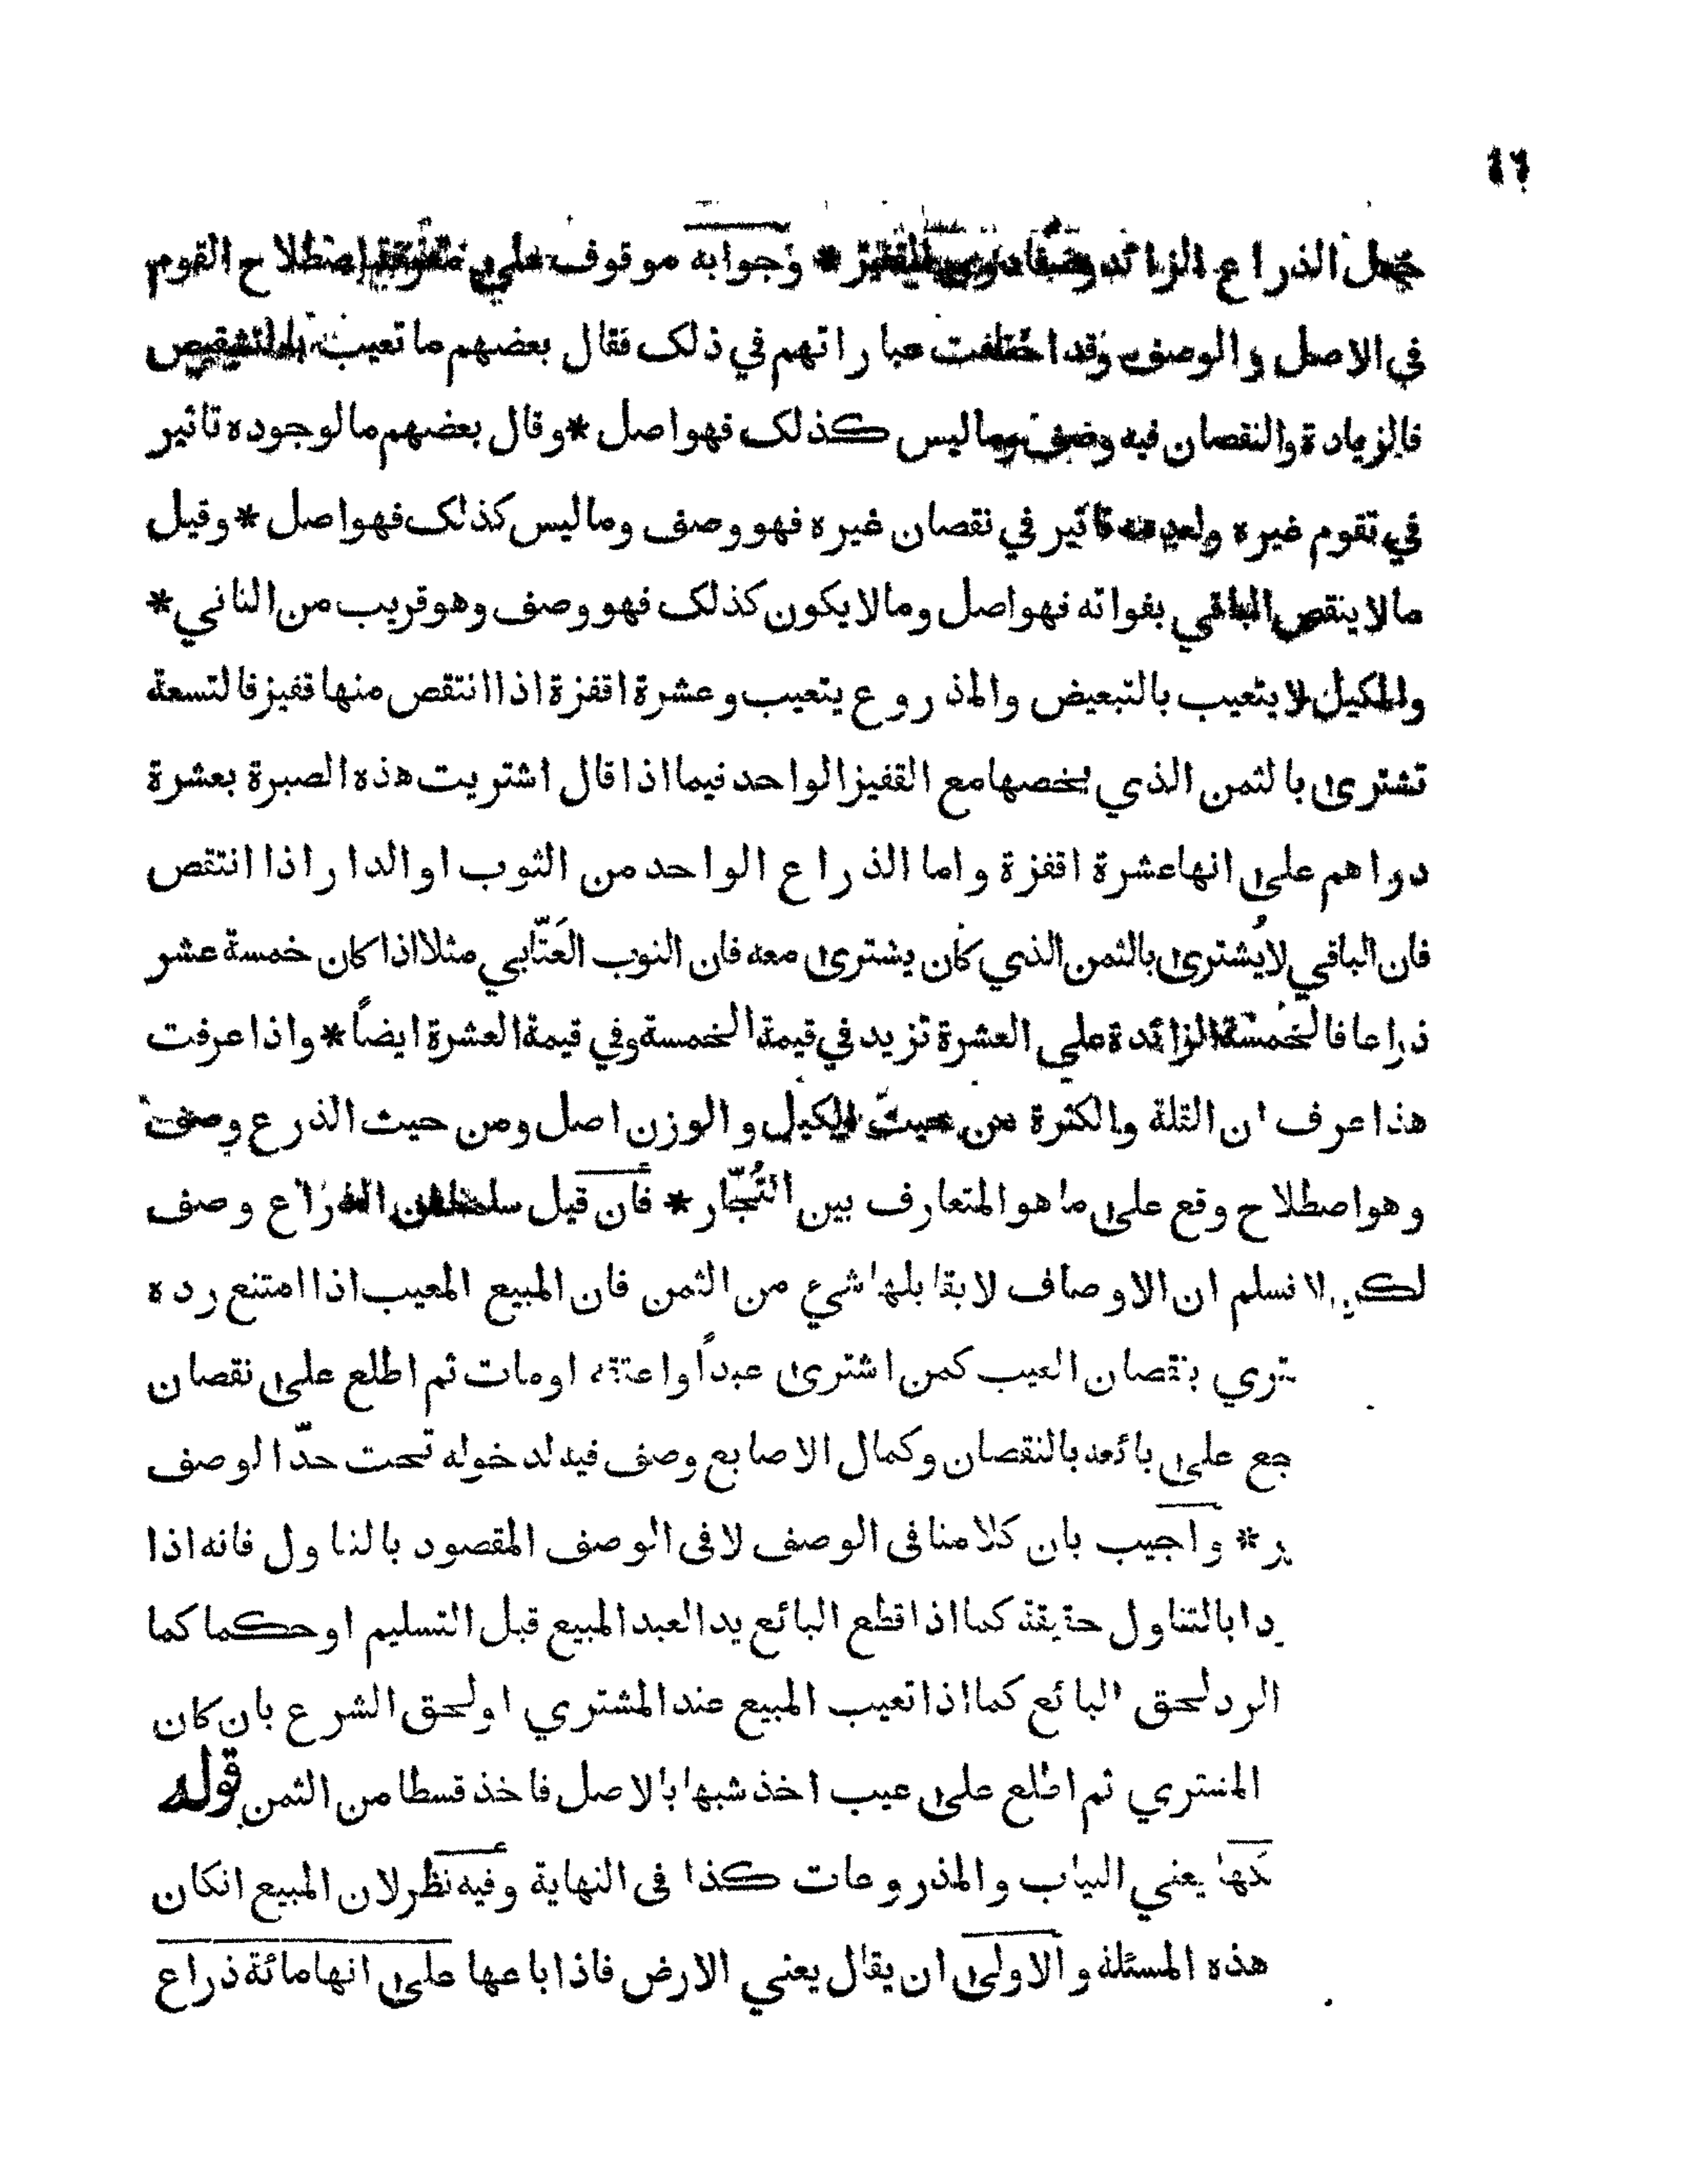 ١٦
جعل الذراع الزائد وصفا دون القفيز * وجوابه موقوف على معرفة اصطلاح القوم
في الاصل والوصف وقد اختلفت عباراتهم في ذلك فقال بعضهم ما تعيب بالتشقيص
فالزيادة والنقصان فيه وصف وما ليس كذلك فهو اصل * وقال بعضهم ما لوجوده تاثير
في تقوم غيره ولعدمه تاثير في نقصان غيره فهو وصف وما ليس كذلك فهو اصل * وقيل
ما لا ينقص الباقي بفواته فهو اصل وما لا يكون كذلك فهو وصف وهو قريب من الثاني *
والمكيل لا يتعيب بالتبعيض والمذروع يتعيب وعشرة اقفزة اذا انتقص منها قفيز فالتسعة
تشترى بالثمن الذي يخصها مع القفيز الواحد فيما اذا قال اشتريت هذه الصبرة بعشرة
دراهم على انها عشرة اقفزة واما الذراع الواحد من الثوب او الدار اذا انتقص
فان الباقي لا يُشترى بالثمن الذي كان يشترى معه فان الثوب العَتّابي مثلا اذا كان خمسة عشر
ذراعا فالخمسة الزائدة على العشرة تزيد في قيمة الخمسة وفي قيمة العشرة ايضاً * واذا عرفت
هذا عرف ان القلة والكثرة من حيث الكيل والوزن اصل ومن حيث الذرع وصف
وهو اصطلاح وقع على ما هو المتعارف بين التُجّار * فان قيل سلمنا ان الذراع وصف
لكن لا نسلم ان الاوصاف لا يقابلها شيء من الثمن فان المبيع المعيب اذا امتنع رده
تري بنقصان العيب كمن اشترى عبداً واعتقه او مات ثم اطلع على نقصان
جع على بائعه بالنقصان وكمال الاصابع وصف فيه لدخوله تحت حدّ الوصف
ر * واجيب بان كلامنا فى الوصف لا فى الوصف المقصود بالتناول فانه اذا
دا بالتناول حقيقة كما اذا قطع البائع يد العبد المبيع قبل التسليم او حكما كما
الرد لحق البائع كما اذا تعيب المبيع عند المشتري او لحق الشرع بان كان
المشتري ثم اطلع على عيب اخذ شبها بالاصل فاخذ قسطا من الثمن قوله
يعني الثياب والمذروعات كذا فى النهاية وفيه نظر لان المبيع انكان
هذه المسئلة والاولى ان يقال يعني الارض فاذا باعها على انها مائة ذراع